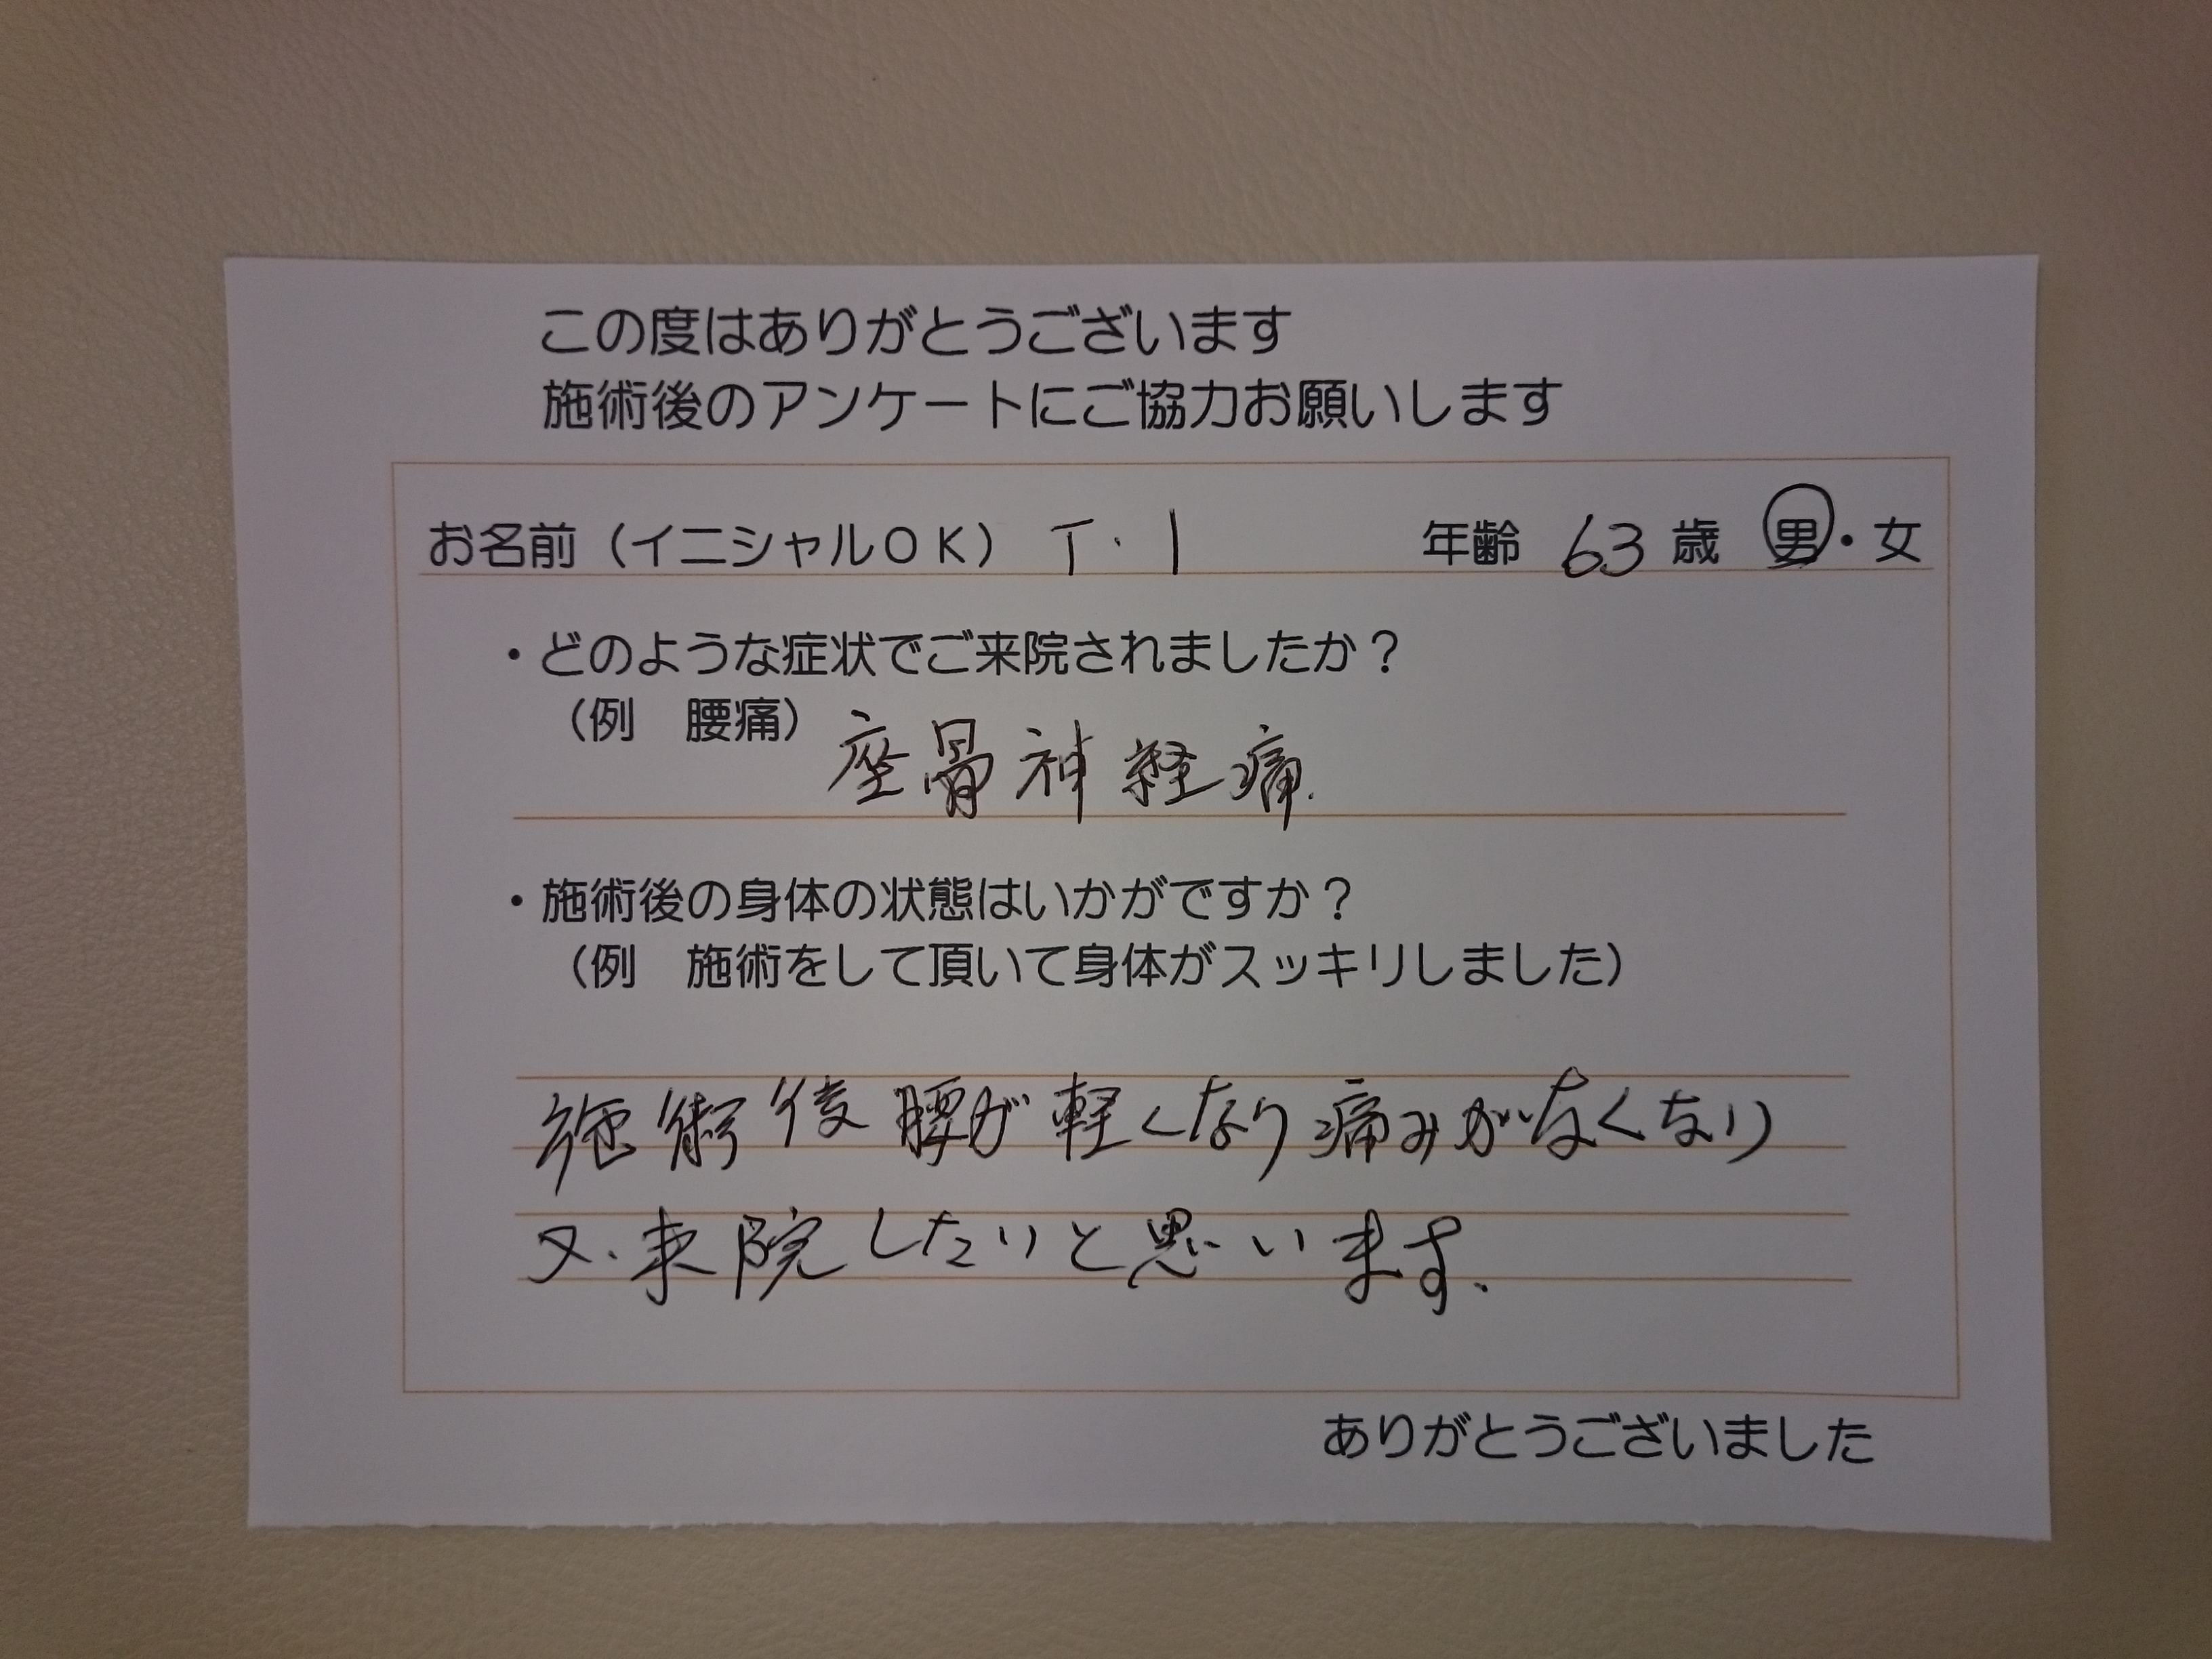 この度はありがとうございます
施術後のアンケートにご協力お願いします
お名前（イニシャルＯＫ） T・I 年齢 63 歳 男・女
・どのような症状でご来院されましたか？
（例　腰痛） 座骨神経痛.
・施術後の身体の状態はいかがですか？
（例　施術をして頂いて身体がスッキリしました）
施術後腰が軽くなり痛みがなくなり
又.来院したいと思います.
ありがとうございました